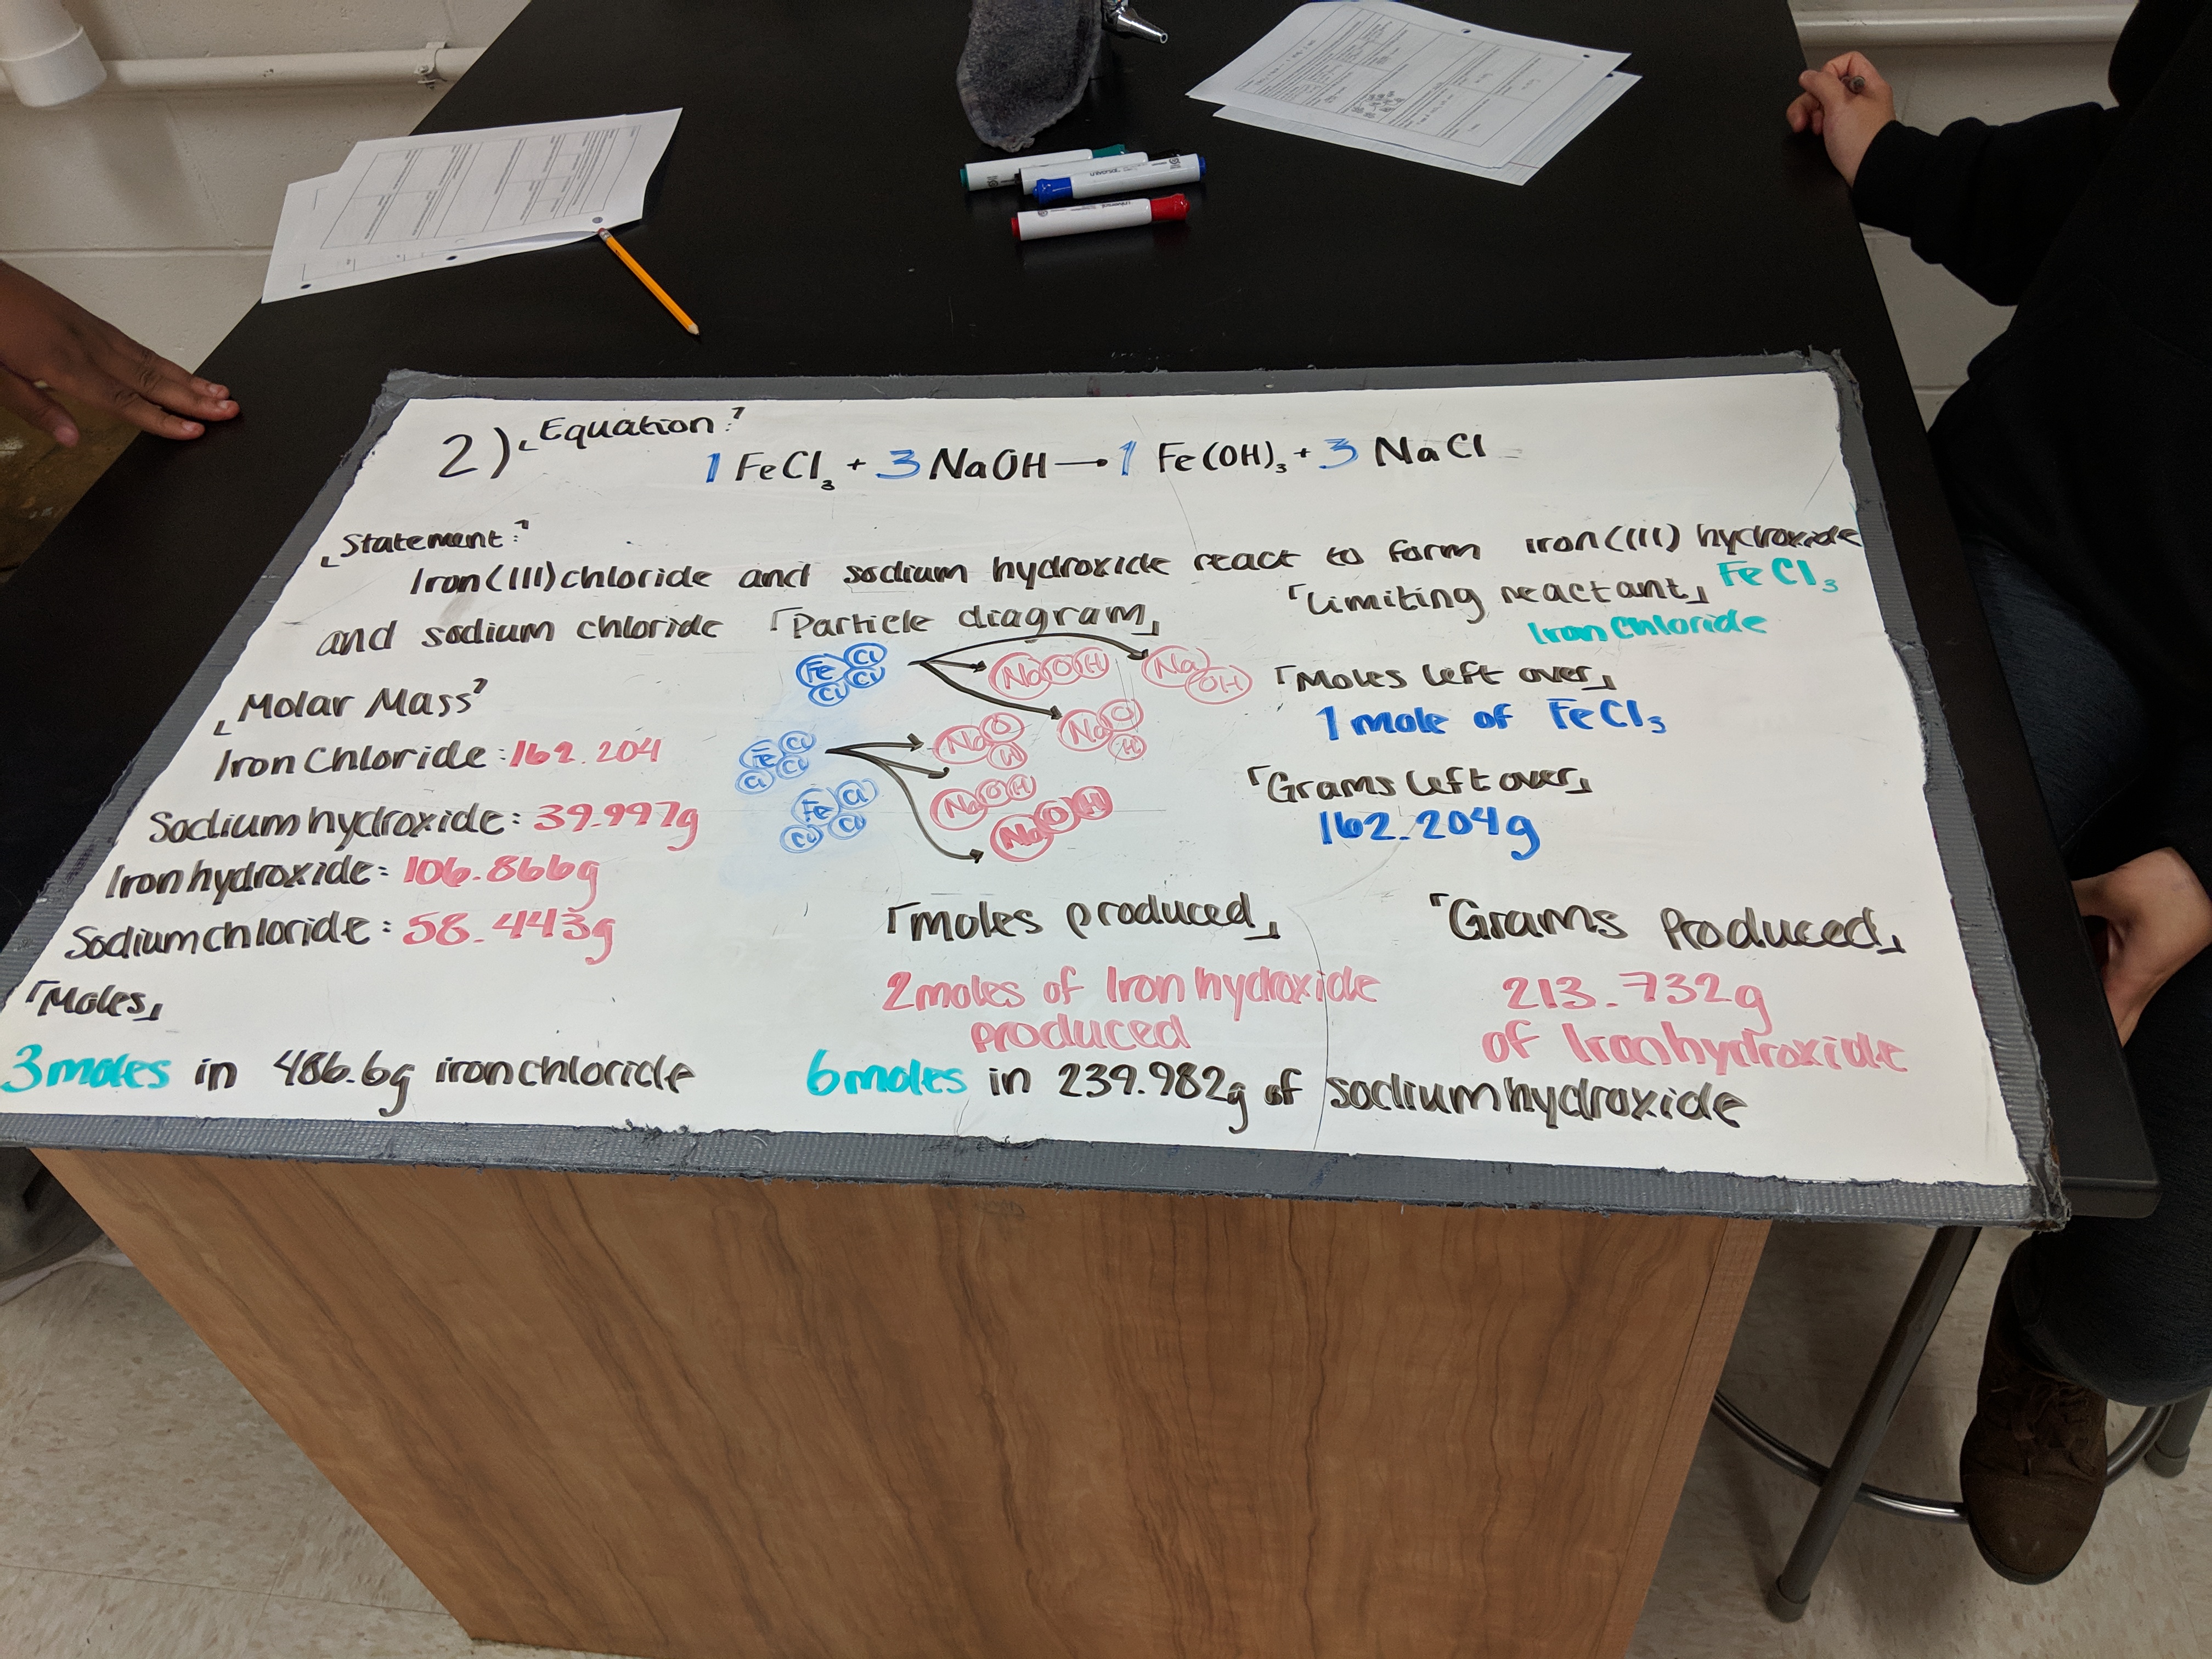 2) ⌞Equation⌝
1 FeCl₃ + 3 NaOH → 1 Fe(OH)₃ + 3 NaCl
⌞Statement⌝
Iron(III) chloride and sodium hydroxide react to form iron(III) hydroxide
and sodium chloride
「Particle diagram」
Fe Cl Cl Cl
NaOH
Na OH
Na O H
Fe Cl Cl Cl
Na O H
Na O H
Fe Cl Cl Cl
Na O H
「Limiting reactant」 FeCl₃
Iron Chloride
「Moles left over」
1 mole of FeCl₃
「Grams left over」
162.204g
⌞Molar Mass⌝
Iron Chloride: 162.204
Sodium hydroxide: 39.997g
Iron hydroxide: 106.866g
Sodium chloride: 58.443g
「moles produced」
2 moles of Iron hydroxide
produced
「Grams Produced」
213.732g
of Iron hydroxide
「Moles」
3 moles in 486.6g iron chloride
6 moles in 239.982g of sodium hydroxide